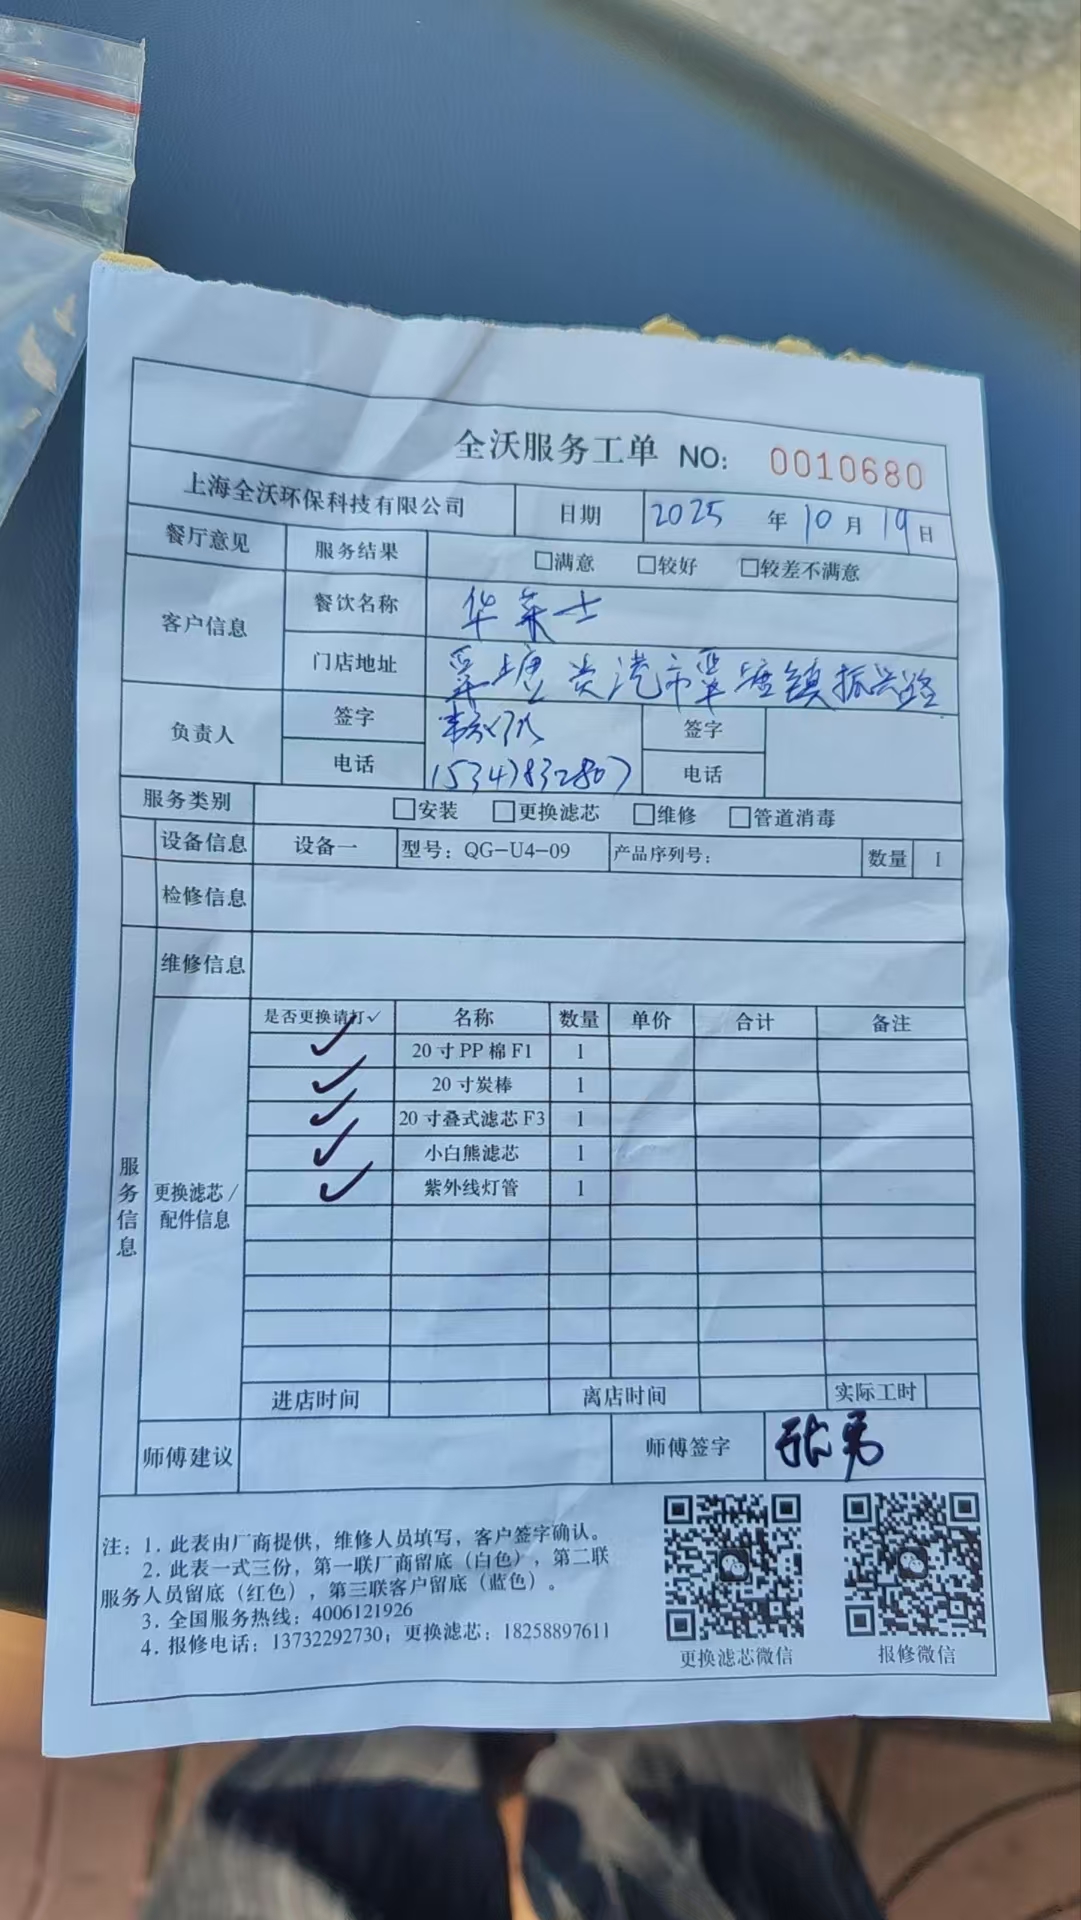 全沃服务工单 NO: 0010680
上海全沃环保科技有限公司 日期 2025 年 10 月 19 日
餐厅意见 服务结果 □满意 □较好 □较差不满意
客户信息 餐饮名称 华莱士
门店地址 覃塘 贵港市覃塘镇振兴路
负责人 签字 签字
电话 15347832807 电话
服务类别 □安装 □更换滤芯 □维修 □管道消毒
设备信息 设备一 型号：QG-U4-09 产品序列号： 数量 1
检修信息
维修信息
服务信息
更换滤芯/配件信息
是否更换请打✓ 名称 数量 单价 合计 备注
✓ 20寸PP棉F1 1
✓ 20寸炭棒 1
✓ 20寸叠式滤芯F3 1
✓ 小白熊滤芯 1
✓ 紫外线灯管 1
进店时间 离店时间 实际工时
师傅建议 师傅签字
注：1. 此表由厂商提供，维修人员填写，客户签字确认。
2. 此表一式三份，第一联厂商留底（白色），第二联
服务人员留底（红色），第三联客户留底（蓝色）。
3. 全国服务热线：4006121926
4. 报修电话：13732292730；更换滤芯：18258897611
更换滤芯微信 报修微信